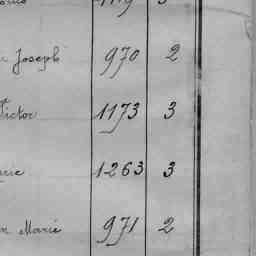 Joseph 970 2
Victor 1173 3
1263 3
Marie 971 2